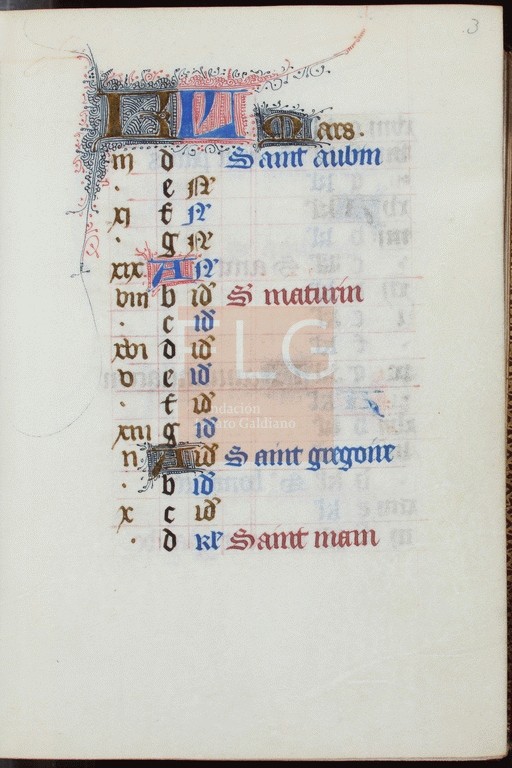 3
KL Mars.
iii d Saint aubin
. e N
xi f N
. g N
xix A N
viii b id S maturin
. c id
xvi d id
v e id
. f id
xiii g id
ii A id Saint gregoire
. b id
x c id
. d kl Saint main
FLG
Fundación
Lázaro Galdiano